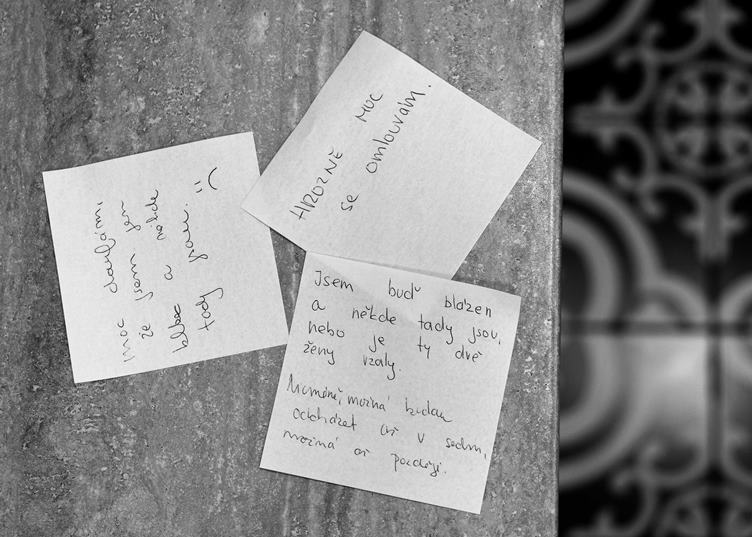 HROZNĚ MOC
se omlouvám.
moc doufám,
že jsem jen
blbec a někde
tady jsou. :(
Jsem buď blázen
a někde tady jsou,
nebo je ty dvě
ženy vzaly.
možná budou
odcházet až v sedm,
možná až později.